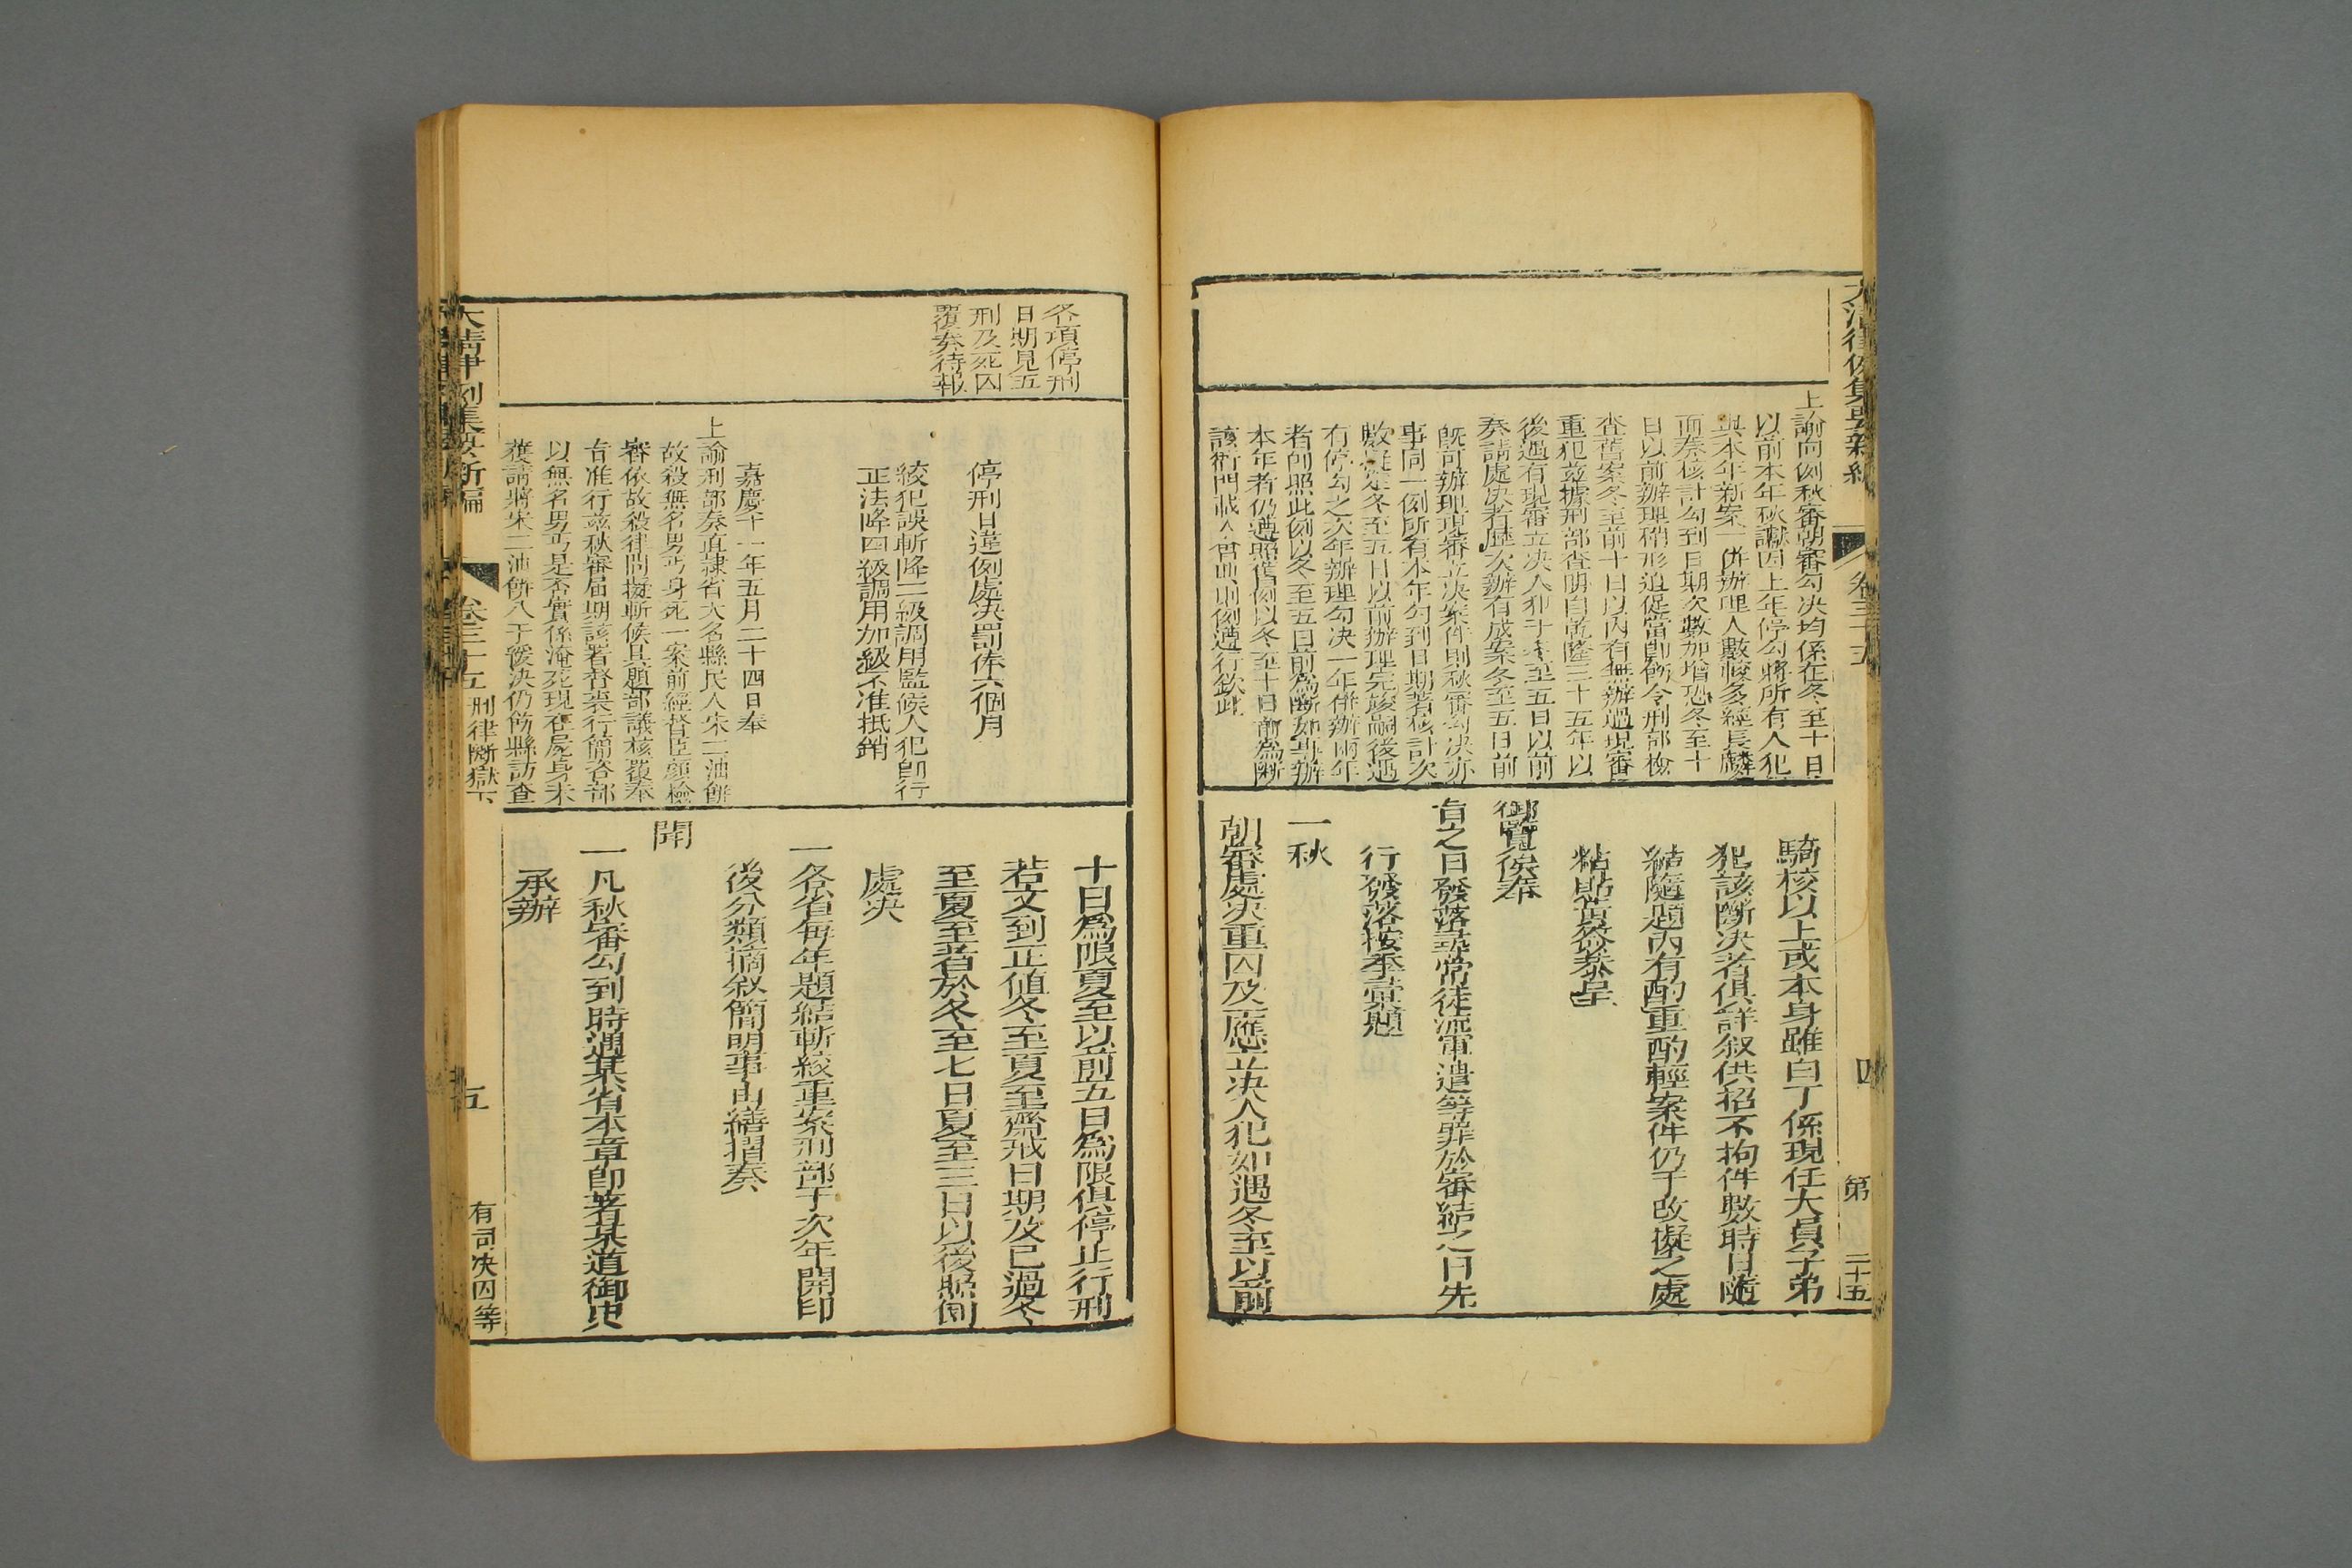 大清律例集要新編
卷三十五
四
第
二十五
上諭向例秋審朝審勾決均係在冬至十日
以前本年秋讞因上年停勾將所有人犯
與本年新案一併辦理人數較多經長麟
面奏核計勾到日期次數加增恐冬至十
日以前辦理稍形迫促當即飭令刑部檢
查舊案冬至前十日以內有無辦過現審
重犯茲據刑部查明自乾隆三十五年以
後遇有現審立決人犯于冬至五日以前
奏請處決者歷次辦有成案冬至五日前
既可辦理現審立決案件則秋審勾決亦
事同一例所有本年勾到日期著核計次
數從冬至五日以前辦理完竣嗣後遇
有停勾之次年辦理勾決一年併辦兩年
者即照此例以冬至五日前為斷如專辦
本年者仍遵照舊例以冬至十日前為斷
該衙門載入會典則例遵行欽此
騎校以上或本身雖白丁係現任大員子弟
犯該斷決者俱詳敘供招不拘件數時日隨
結隨題內有酌重酌輕案件仍于改擬之處
粘貼黃簽恭呈
御覽俟奉
旨之日發落尋常徒流軍遣等罪於審結之日先
行發落按季彙題
一秋
朝審處決重囚及應立決人犯如遇冬至以前
各項停刑
日期見五
刑及死囚
覆奏待報
停刑日違例處決罰俸六個月
絞犯誤斬降二級調用監候人犯即行
正法降四級調用加級不准抵銷
嘉慶十一年五月二十四日奉
上諭刑部奏直隸省大名縣民人宋二油餅
故殺無名男丐身死一案前經督臣顏檢
審依故殺律問擬斬候具題部議核覆奉
旨准行茲秋審屆期該署督裘行簡咨部
以無名男丐是否實係淹死現在屍身未
獲請將宋二油餅入于緩決仍飭縣訪查
十日為限夏至以前五日為限俱停止行刑
若文到正值冬至夏至齋戒日期及已過冬
至夏至者於冬至七日夏至三日以後照例
處決
一各省每年題結斬絞重案刑部于次年開印
後分類摘敘簡明事由繕摺奏
聞
一凡秋審勾到時遇某省本章即著某道御史
承辦
大清律例集要新編
卷三十五
刑律斷獄下
五
有司決囚等